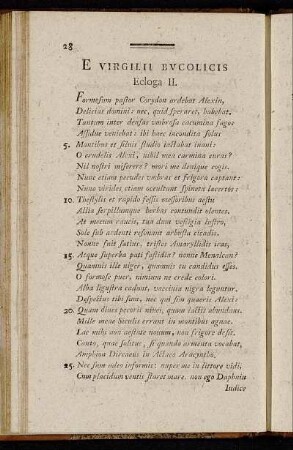 28
E VIRGILII BVCOLICIS
Ecloga II.
Formosum pastor Corydon ardebat Alexin,
Delicias domini: nec, quid speraret, habebat.
Tantum inter densas vmbrosa cacumina fagos
Assidue veniebat: ibi haec incondita solus
5. Montibus et siluis studio iactabat inani:
O crudelis Alexi, nihil mea carmina curas?
Nil nostri miserere? mori me denique coges.
Nunc etiam pecudes vmbras et frigora captant:
Nunc virides etiam occultant spineta lacertos:
10. Thestylis et rapido fessis messoribus aestu
Allia serpillumque herbas contundit olentes.
At mecum raucis, tua dum vestigia lustro,
Sole sub ardenti resonant arbusta cicadis.
Nonne fuit satius, tristes Amaryllidis iras,
15. Atque superba pati fastidia? nonne Menalcan?
Quamuis ille niger, quamuis tu candidus esses.
O formose puer, nimium ne crede colori.
Alba ligustra cadunt, vaccinia nigra leguntur.
Despectus tibi sum, nec qui sim quaeris Alexi:
20. Quam diues pecoris niuei, quam lactis abundans.
Mille meae Siculis errant in montibus agnae.
Lac mihi non aestate nouum, non frigore defit.
Canto, quae solitus, si quando armenta vocabat,
Amphion Dircaeus in Actaeo Aracyntho.
25. Nec sum adeo informis: nuper me in littore vidi,
Cum placidum ventis staret mare. non ego Daphnin
Iudice